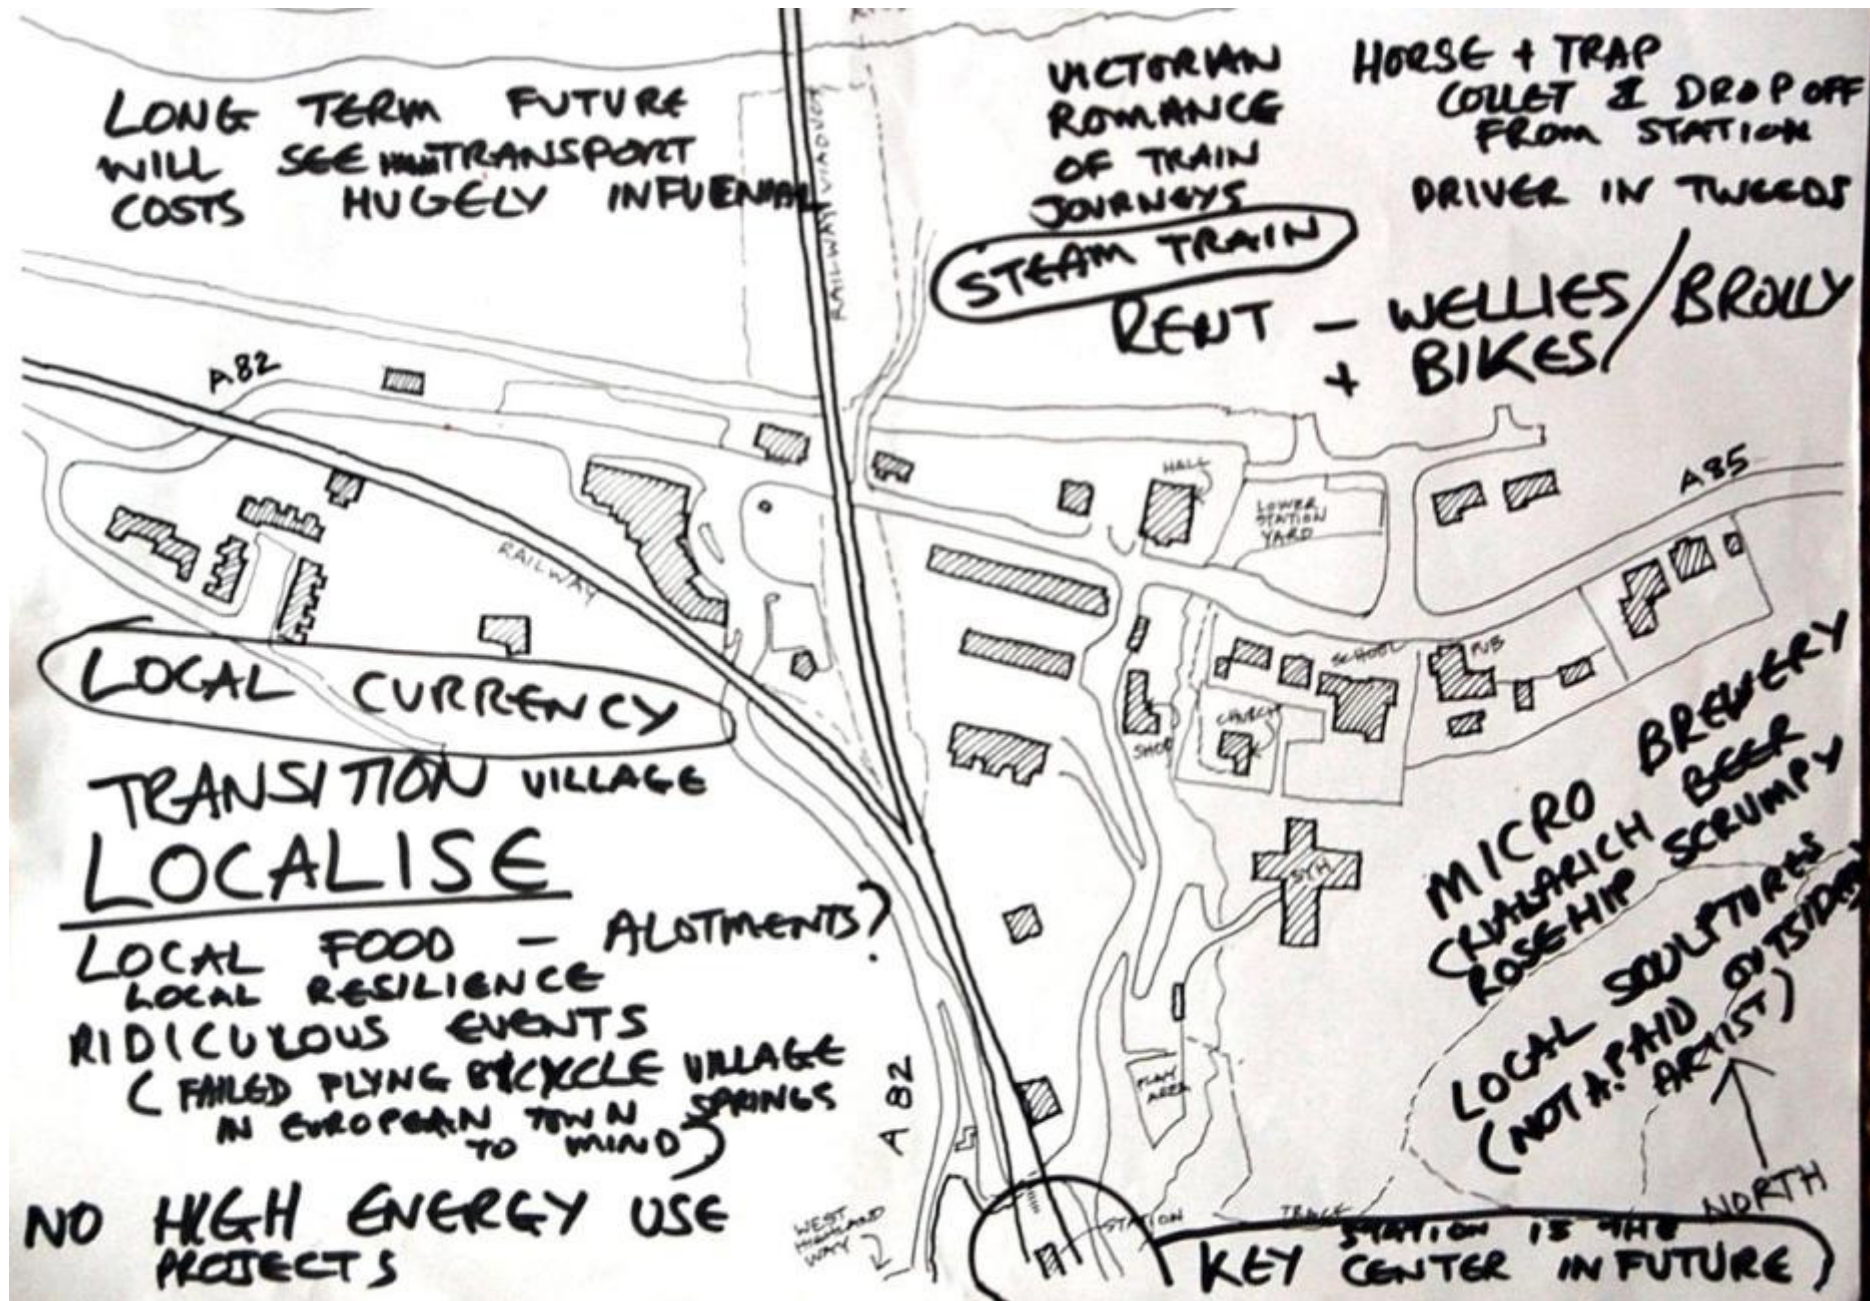 LONG TERM FUTURE
WILL SEE TRANSPORT
COSTS HUGELY INFUENIAL
VICTORIAN
ROMANCE
OF TRAIN
JOURNEYS
STEAM TRAIN
HORSE + TRAP
COLLET & DROP OFF
FROM STATION
DRIVER IN TWEEDS
RENT - WELLIES/BROLLY
+ BIKES/
RAILWAY VIADUCT
A82
RAILWAY
HALL
LOWER
STATION
YARD
A85
SCHOOL
PUB
CHURCH
SHOP
SYH
PLAY
AREA
LOCAL CURRENCY
TRANSITION VILLAGE
LOCALISE
LOCAL FOOD - ALOTMENTS?
LOCAL RESILIENCE
RIDICULOUS EVENTS
(FAILED FLYNG BICYCLE VILLAGE
IN EUROPEAN TOWN SPRINGS
TO MIND)
NO HIGH ENERGY USE
PROJECTS
A82
WEST
HIGHLAND
WAY
MICRO BREWERY
CRIALARICH BEER
ROSEHIP SCRUMPY
LOCAL SCULPTURES
(NOT A PAID OUTSIDE
ARTIST)
NORTH
STATION
STATION IS THE
KEY CENTER IN FUTURE